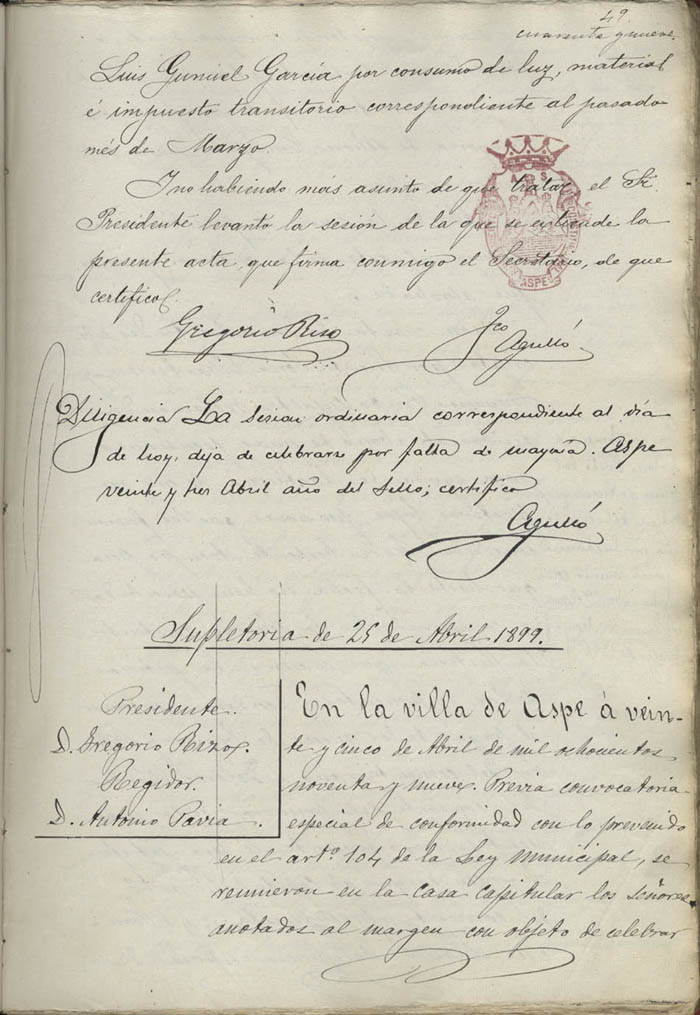 49.
cuarenta y nueve.
Luis Gumiel García por consumo de luz, material
é impuesto transitorio correspondiente al pasado
més de Marzo.
I no habiendo más asunto de que tratar, el Sr.
Presidente levantó la sesión de la que se extiende la
presente acta, que firma conmigo el Secretario, de que
certifico.
Gregorio Rizo
Fco
Agulló
Diligencia La sesion ordinaria correspondiente al día
de hoy, deja de celebrarse por falta de mayoría. Aspe
veinte y tres Abril año del Sello; certifico
Agulló
Supletoria de 25 de Abril 1899.
Presidente.
D. Gregorio Rizo.
Regidor.
D. Antonio Pavia.
En la villa de Aspe á vein-
te y cinco de Abril de mil ochocientos
noventa y nueve. Previa convocatoria
especial de conformidad con lo prevenido
en el artº 104 de la Ley Municipal, se
reunieron en la casa capitular los señores
anotados al margen con objeto de celebrar
ASPE